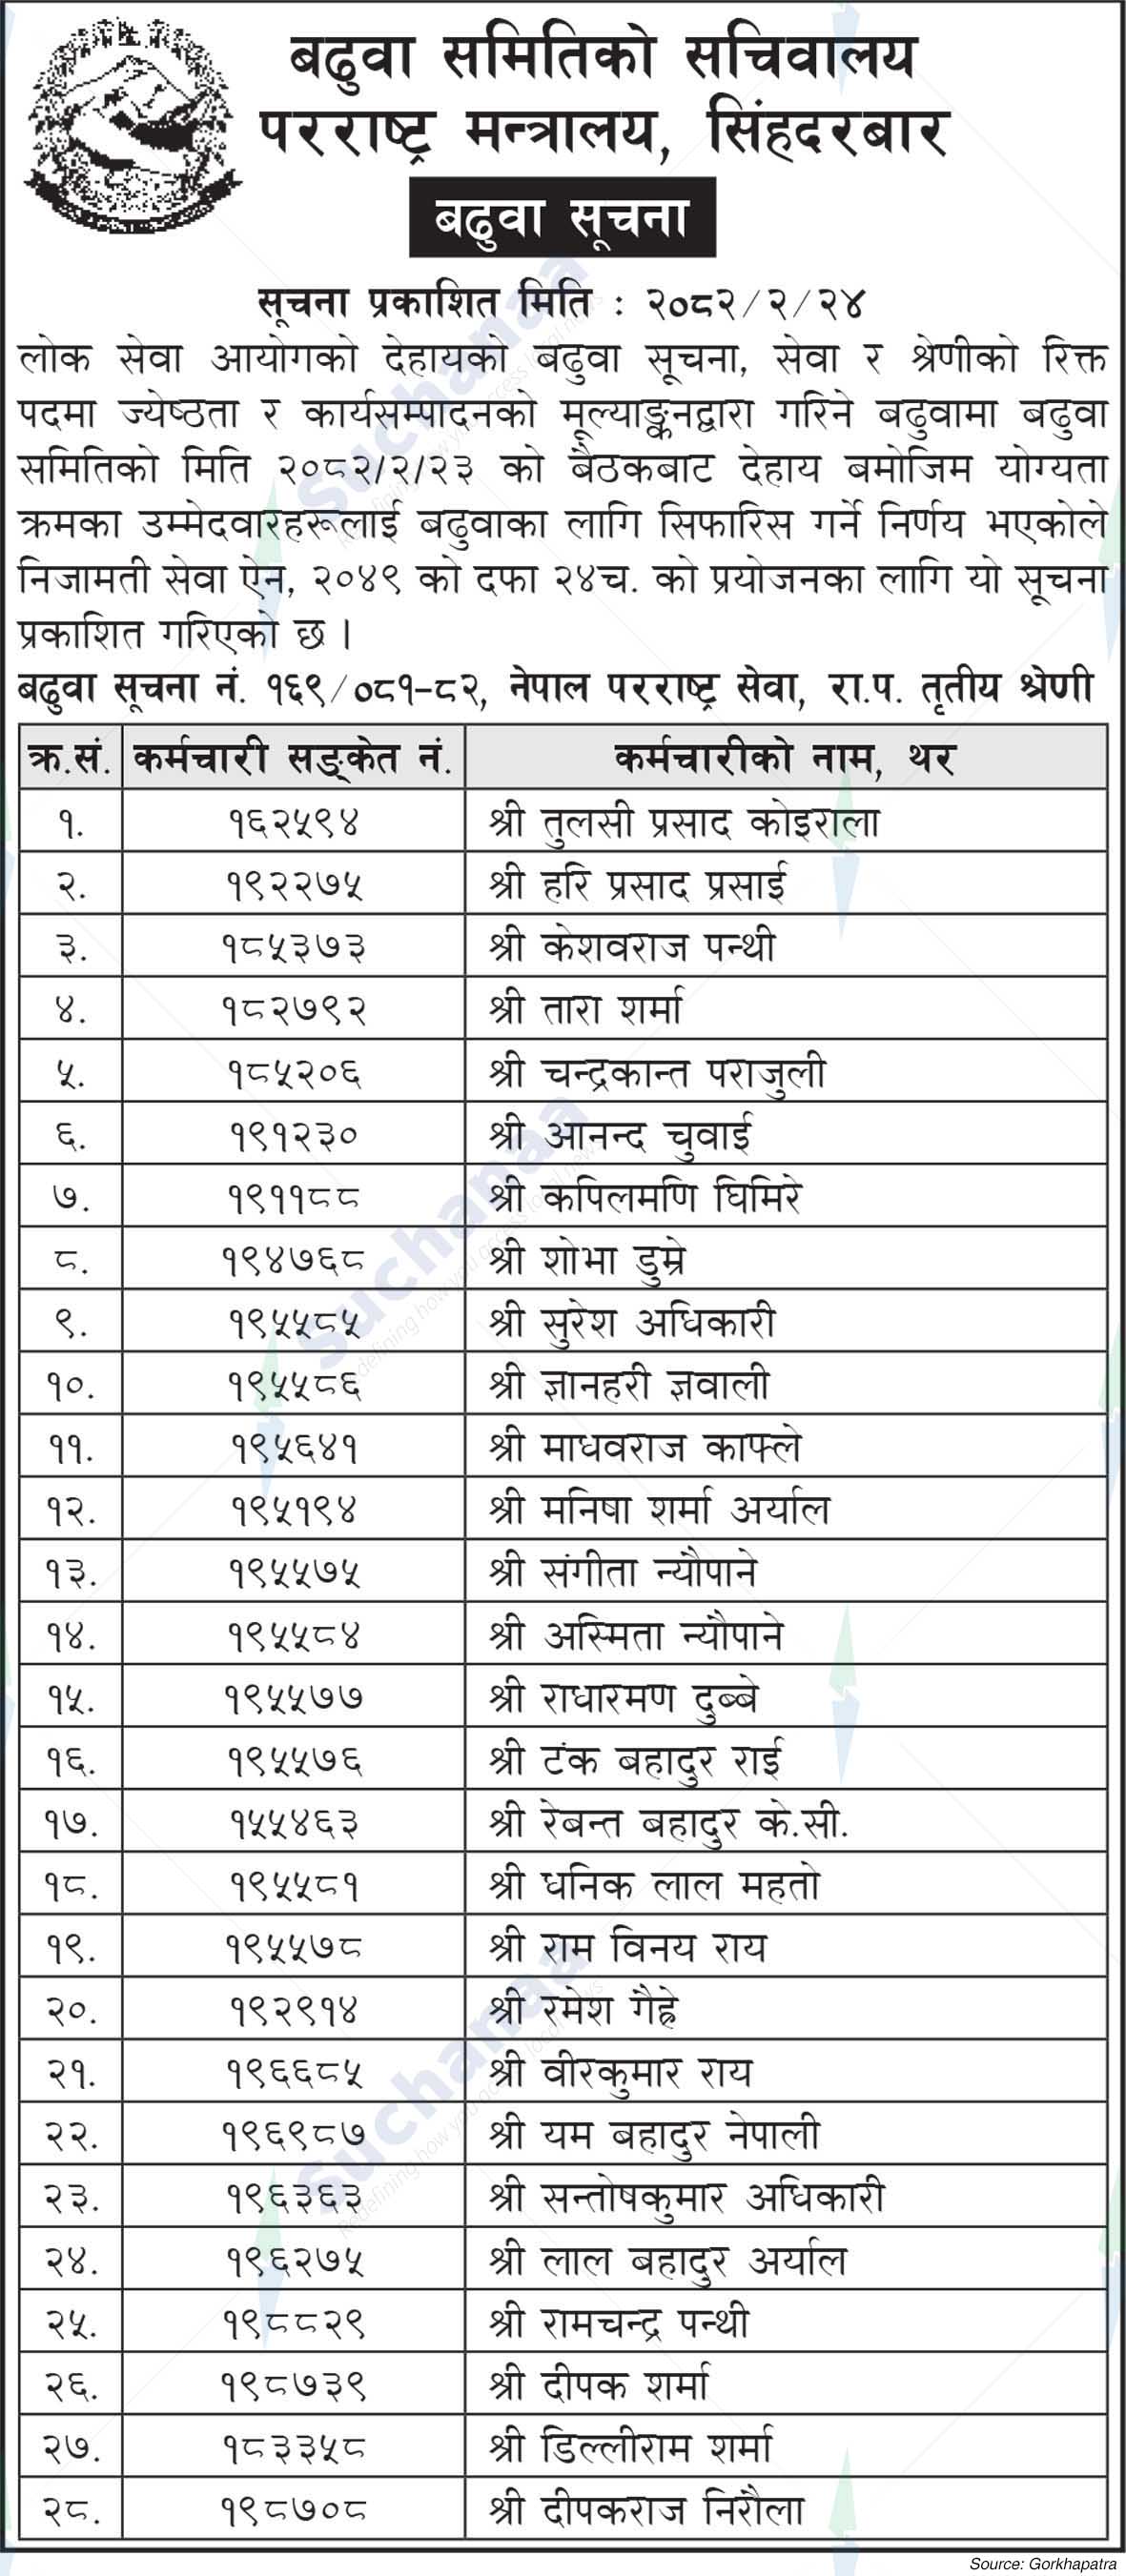 बढुवा समितिको सचिवालय
परराष्ट्र मन्त्रालय, सिंहदरबार
बढुवा सूचना
सूचना प्रकाशित मिति : २०८२/२/२४
लोक सेवा आयोगको देहायको बढुवा सूचना, सेवा र श्रेणीको रिक्त
पदमा ज्येष्ठता र कार्यसम्पादनको मूल्याङ्कनद्वारा गरिने बढुवामा बढुवा
समितिको मिति २०८२/२/२३ को बैठकबाट देहाय बमोजिम योग्यता
क्रमका उम्मेदवारहरूलाई बढुवाका लागि सिफारिस गर्ने निर्णय भएकोले
निजामती सेवा ऐन, २०४९ को दफा २४च. को प्रयोजनका लागि यो सूचना
प्रकाशित गरिएको छ ।
बढुवा सूचना नं. १६९/०८१-८२, नेपाल परराष्ट्र सेवा, रा.प. तृतीय श्रेणी
क्र.सं. कर्मचारी सङ्केत नं. कर्मचारीको नाम, थर
१. १६२५९४ श्री तुलसी प्रसाद कोइराला
२. १९२२७५ श्री हरि प्रसाद प्रसाई
३. १८५३७३ श्री केशवराज पन्थी
४. १८२७९२ श्री तारा शर्मा
५. १८५२०६ श्री चन्द्रकान्त पराजुली
६. १९१२३० श्री आनन्द चुवाई
७. १९११८८ श्री कपिलमणि घिमिरे
८. १९४७६८ श्री शोभा डुम्रे
९. १९५५८५ श्री सुरेश अधिकारी
१०. १९५५८६ श्री ज्ञानहरी ज्ञवाली
११. १९५६४१ श्री माधवराज काफ्ले
१२. १९५१९४ श्री मनिषा शर्मा अर्याल
१३. १९५५७५ श्री संगीता न्यौपाने
१४. १९५५८४ श्री अस्मिता न्यौपाने
१५. १९५५७७ श्री राधारमण दुब्बे
१६. १९५५७६ श्री टंक बहादुर राई
१७. १५५४६३ श्री रेबन्त बहादुर के.सी.
१८. १९५५८१ श्री धनिक लाल महतो
१९. १९५५७८ श्री राम विनय राय
२०. १९२९१४ श्री रमेश गैह्रे
२१. १९६६८५ श्री वीरकुमार राय
२२. १९६९८७ श्री यम बहादुर नेपाली
२३. १९६३६३ श्री सन्तोषकुमार अधिकारी
२४. १९६२७५ श्री लाल बहादुर अर्याल
२५. १९८८२९ श्री रामचन्द्र पन्थी
२६. १९८७३९ श्री दीपक शर्मा
२७. १८३३५८ श्री डिल्लीराम शर्मा
२८. १९८७०८ श्री दीपकराज निरौला
Source: Gorkhapatra
Suchanaa
Redefining how you access local news
Suchanaa
Redefining how you access local news
Suchanaa
Redefining how you access local news